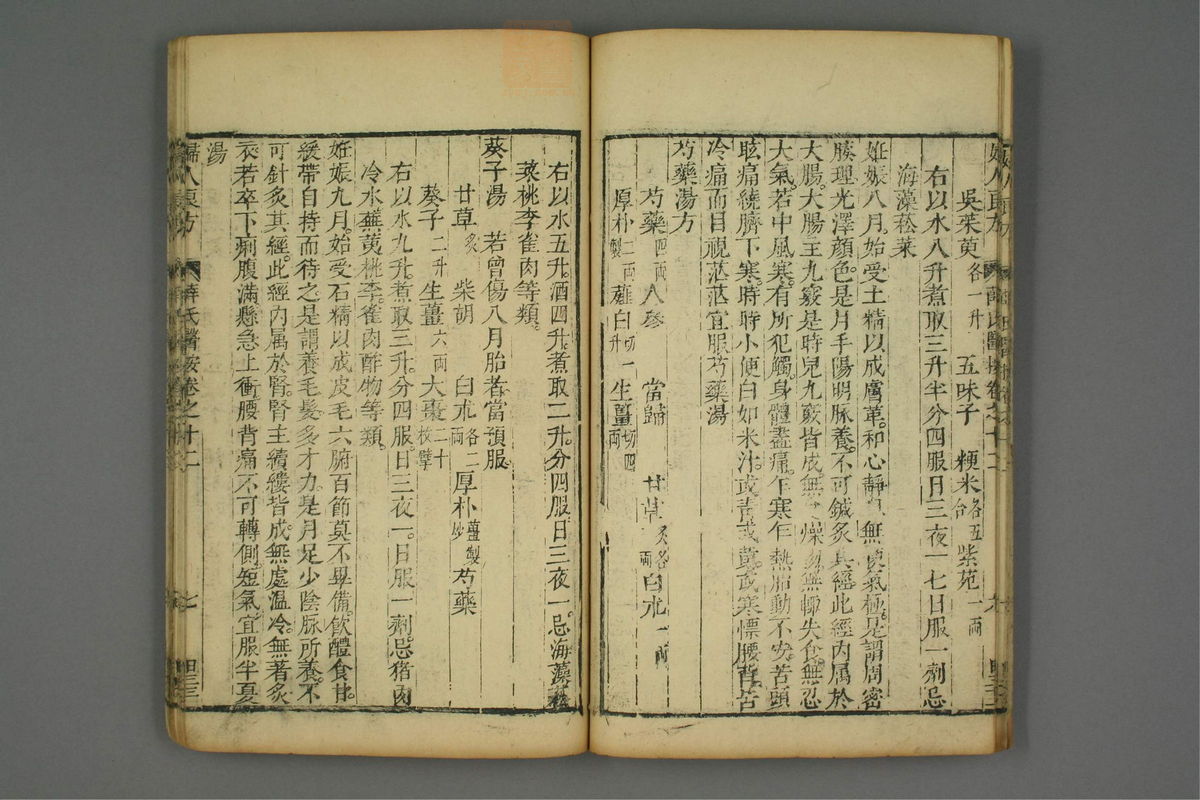 婦人良方
薛氏醫按卷之十二
吳茱萸各一升 五味子 粳米各五合 紫菀一兩
右以水八升煮取三升半分四服日三夜一七日服一劑忌
海藻菘菜
妊娠八月。始受土精以成膚革。和心靜息。無使氣極。是謂周密
腠理光澤顏色是月手陽明脉養。不可鍼炙其經此經内属於
大腸。大腸主九竅是時兒九竅皆成無食燥物無輙失食無忍
大氣。若中風寒。有所犯觸。身體盡痛。乍寒乍熱胎動不安。苦頭
眩痛繞臍下寒。時時小便白如米汁。或青或黄。或寒慄腰背苦
冷痛而目視茫茫宜服芍藥湯
芍藥湯方
芍藥四兩 人參 當歸 甘草炙各 兩 白朮一兩
厚朴二兩製 薤白切一升 生薑切四兩
右以水五升。酒四升。煮取二升。分四服日三夜一。忌海藻菘
菜桃李雀肉等類。
葵子湯 若曾傷八月胎者當預服
甘草炙 柴胡 白朮各二兩 厚朴薑製炒 芍藥
葵子二升 生薑六兩 大棗二十枚擘
右以水九升。煮取三升。分四服。日三夜一。日服一劑。忌猪肉
冷水蕪荑桃李。雀肉酢物等類。
妊娠九月。始受石精以成皮毛六腑百節莫不畢備。飲醴食甘。
緩帶自持而待之。是謂養毛髪多才力。是月足少陰脉所養。不
可針炙其經。此經内属於腎。腎主續縷皆成。無處温冷。無著炙
衣若卒下痢腹滿懸急上衝。腰背痛不可轉側。短氣。宜服半夏
湯
婦人良方
薛氏醫按卷之十二
七